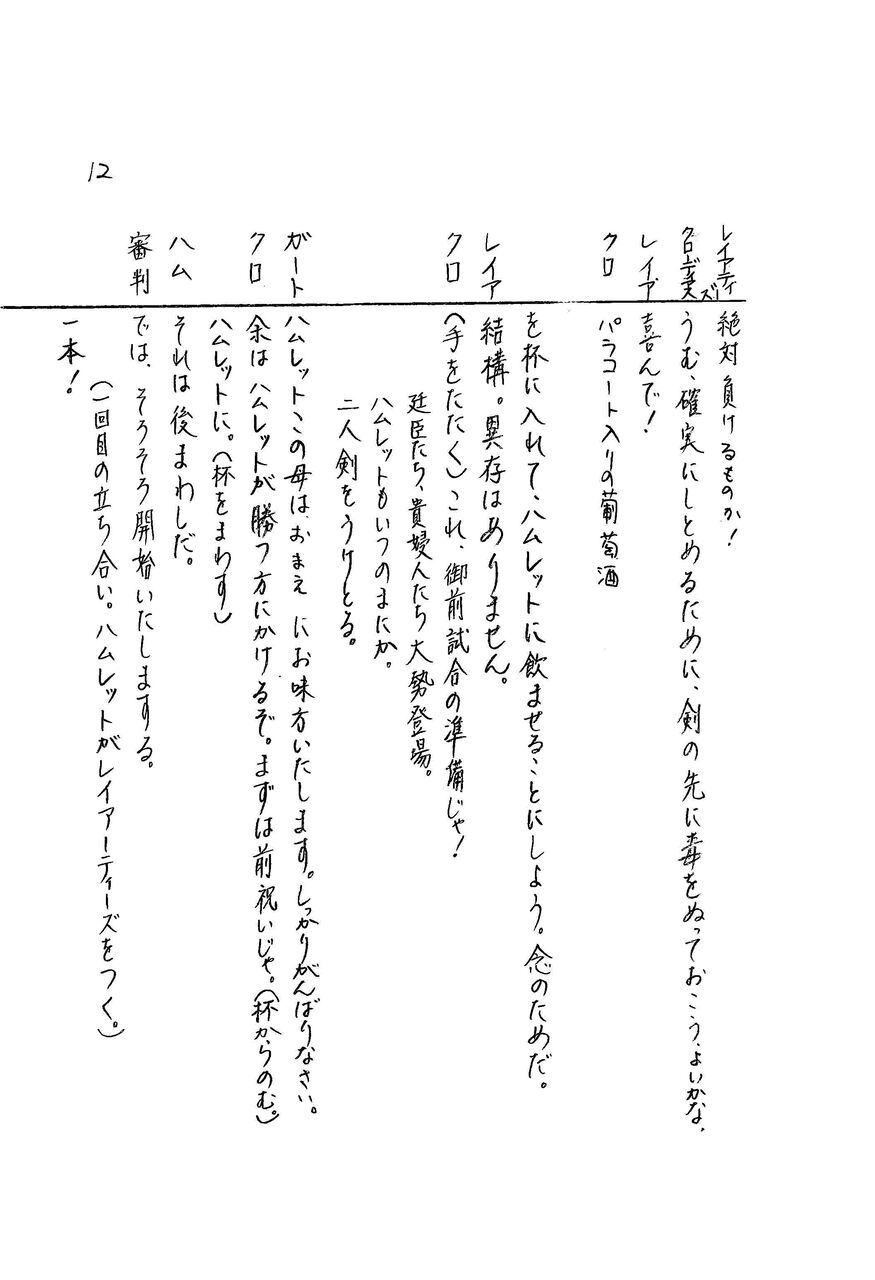 12
レイアティーズ 絶対負けるものか!
クローディアス うむ、確実にしとめるために、剣の先に毒をぬっておこう、よいかな、
レイア 喜んで!
クロ パラコート入りの葡萄酒
を杯に入れて、ハムレットに飲ませることにしよう。念のためだ。
レイア 結構。異存はありません。
クロ (手をたたく)これ、御前試合の準備じゃ!
廷臣たち、貴婦人たち大勢登場。
ハムレットもいつのまにか。
二人剣をうけとる。
ガート ハムレットこの母はおまえにお味方いたします。しっかりがんばりなさい。
クロ 余はハムレットが勝つ方にかけるぞ。まずは前祝いじゃ。(杯からのむ。)
ハムレットに。(杯をまわす)
ハム それは後まわしだ。
審判 では、そろそろ開始いたしまする。
(一回目の立ち合い。ハムレットがレイアーティーズをつく。)
一本!